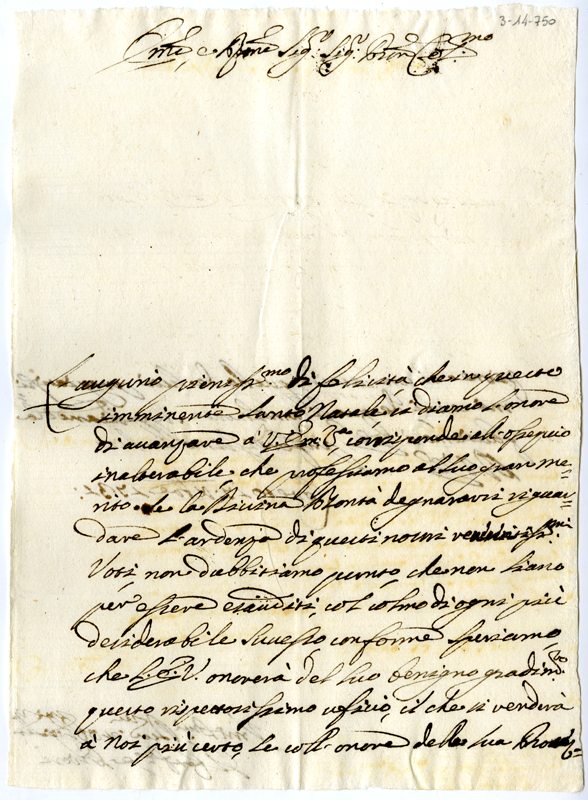 3-14-750
Em̃o, e Rm̃o Sig.r Sig.r Pron̄ Col.mo
L'augurio pieniss.mo di felicità che in questo
imminente Santo Natale ci diamo l'onore
di avanzare à V. Em.za corrisponde all'ossequio
inalterabile, che professiamo al suo gran me=
rito. Se la Divina Bontà degnaravvi riguar=
dare l'ardenza di questi nostri
Voti, non dubbitiamo punto, che non siano
per essere esauditi, col colmo di ogni più
desiderabile successo, conforme speriamo
che l'E. V. onorerà del suo benigno gradim.to
questo rispettosissimo ufficio, il che si renderà
à Noi più certo, se coll'onore della sua